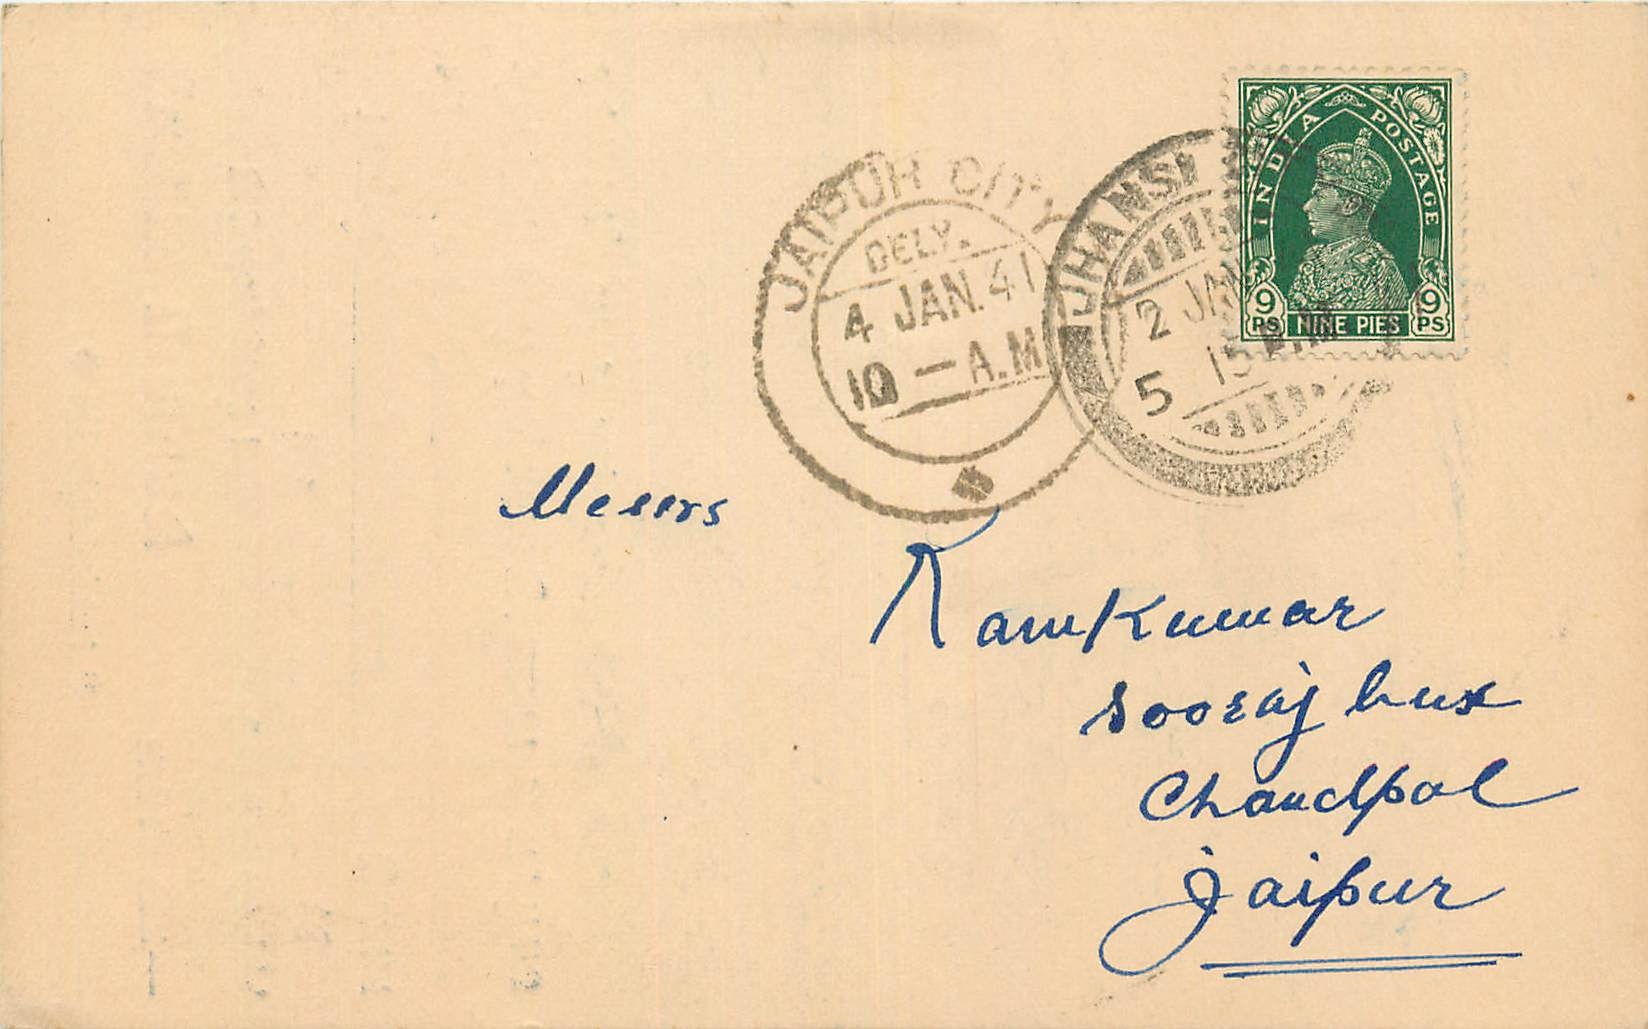 INDIA POSTAGE
9 PS NINE PIES 9 PS
JAIPUR CITY
DELY.
4 JAN. 41
10 — A.M
JHANSI
2 JAN
5 15 P.M
Messrs
Ramkumar
Sooraj bux
Chandpol
Jaipur